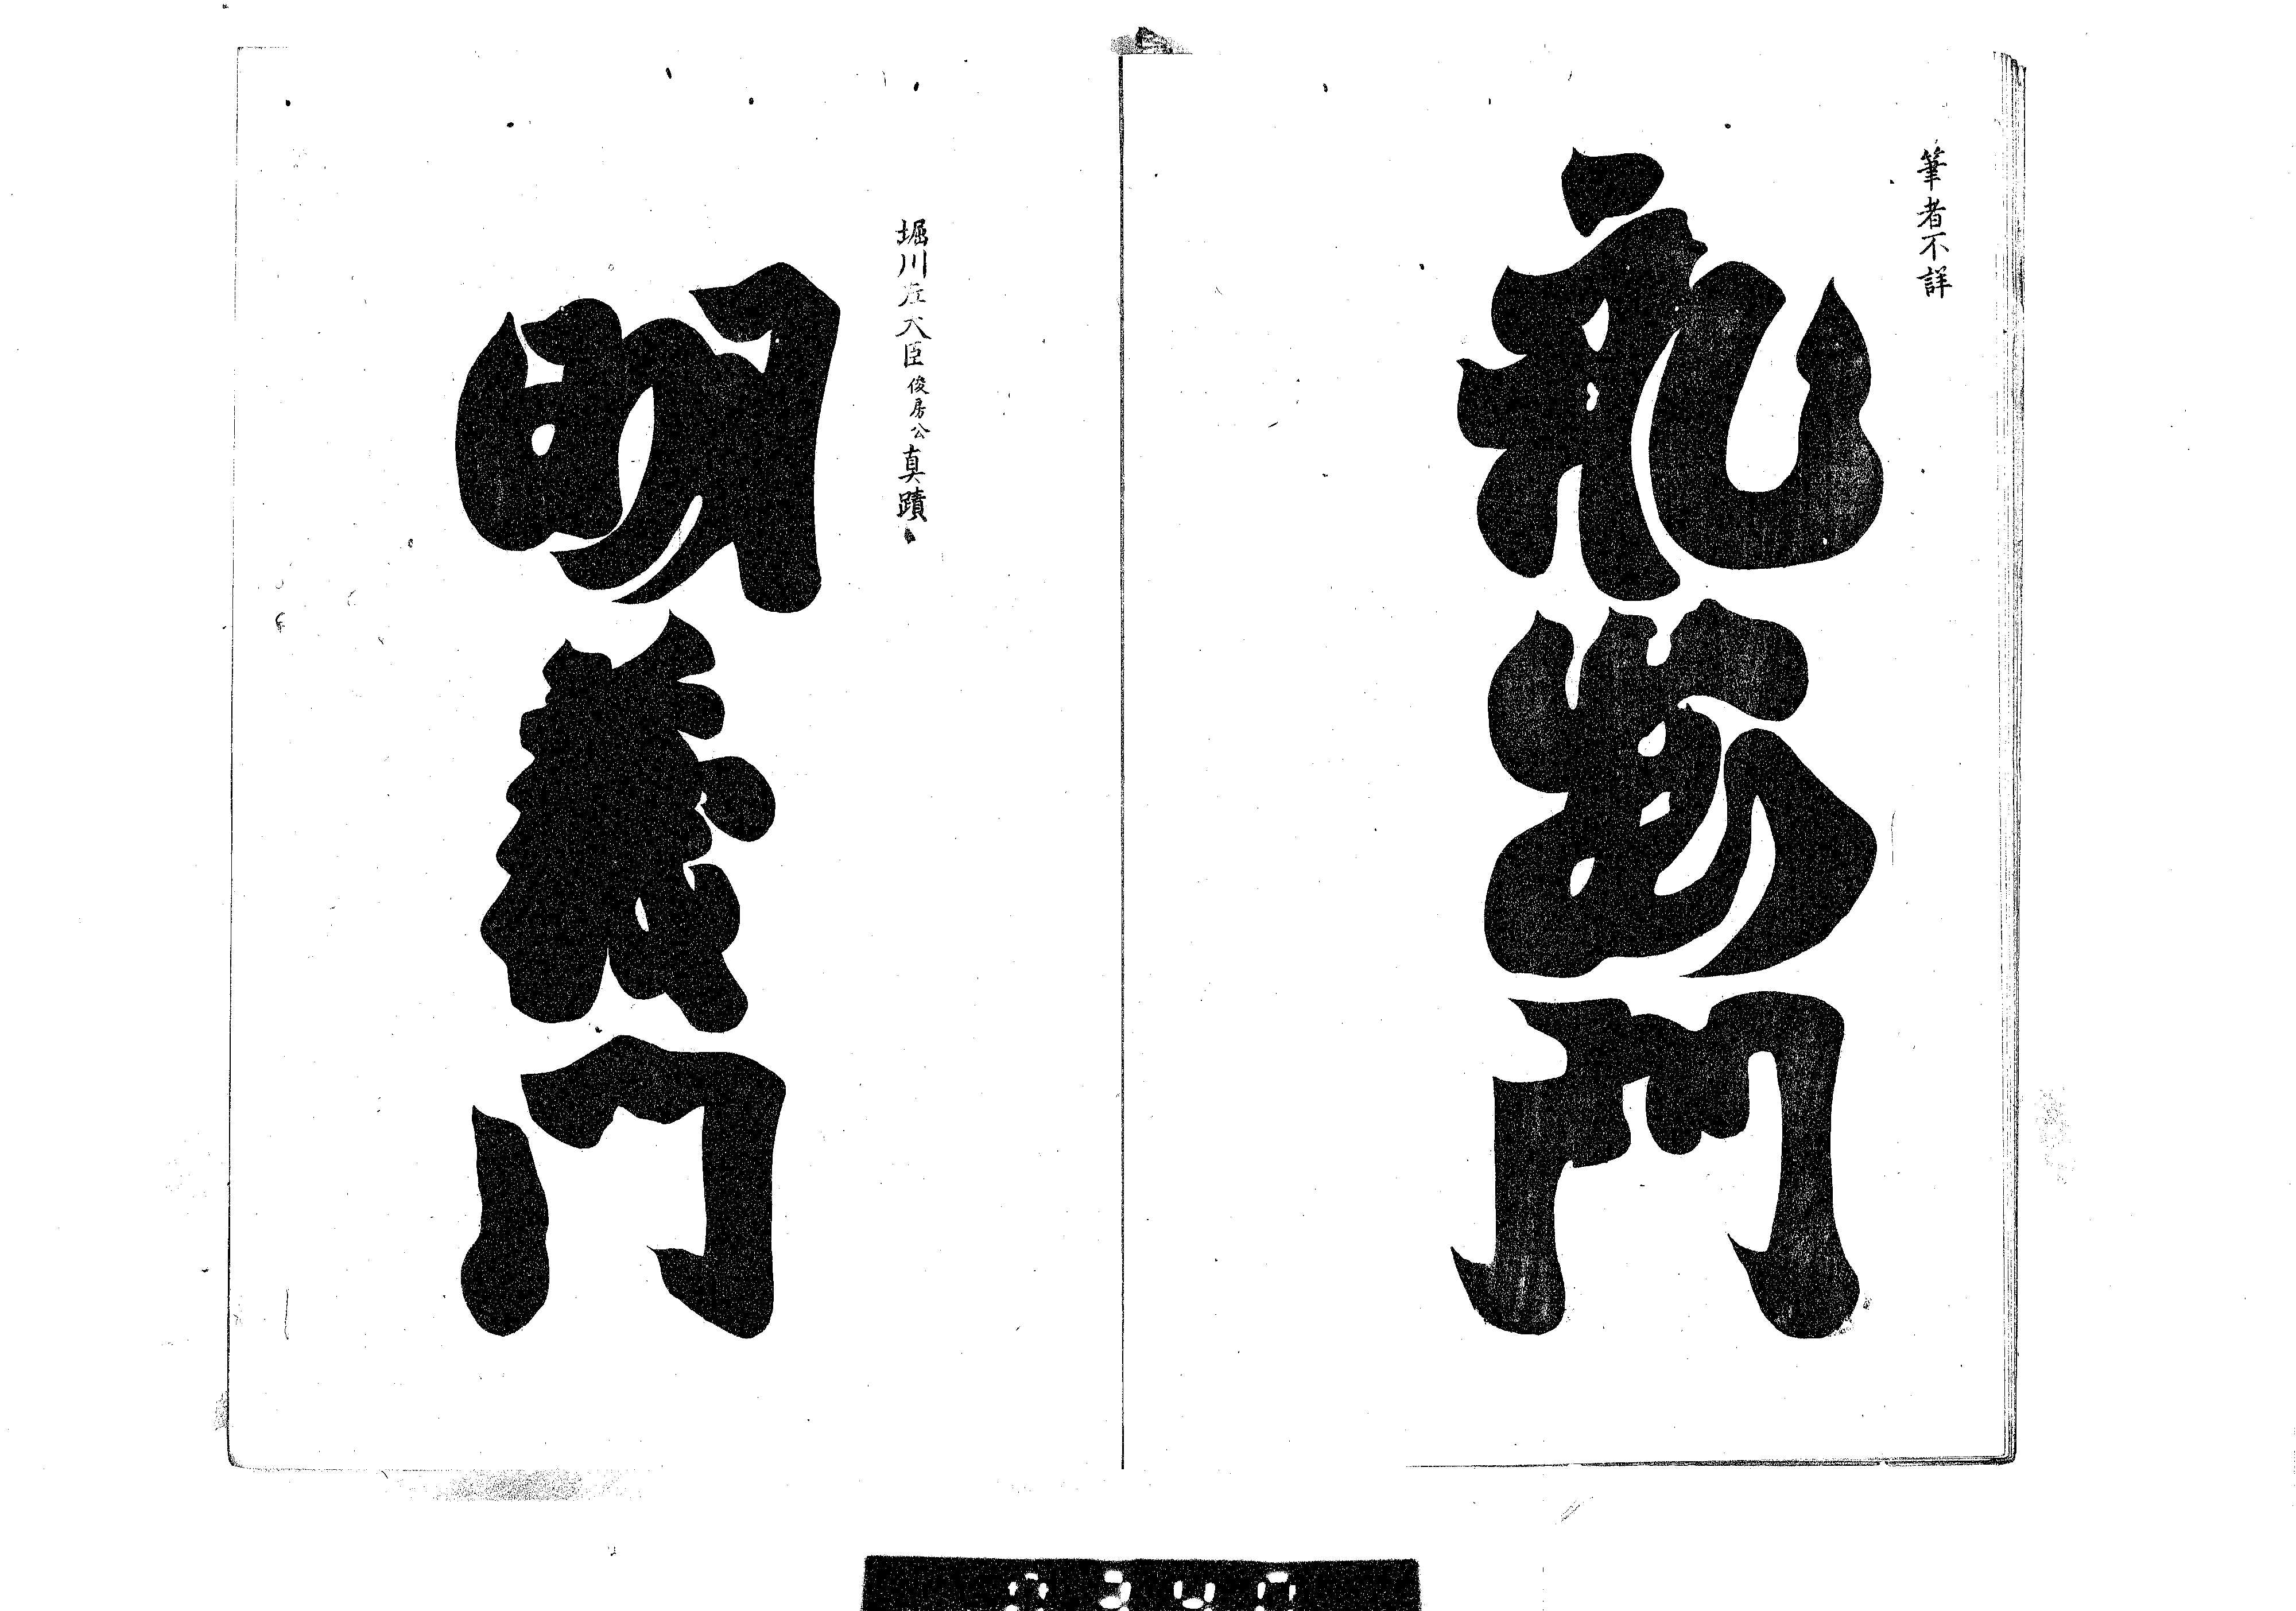 筆者不詳
礼成門
堀川左大臣俊房公真蹟
明義門